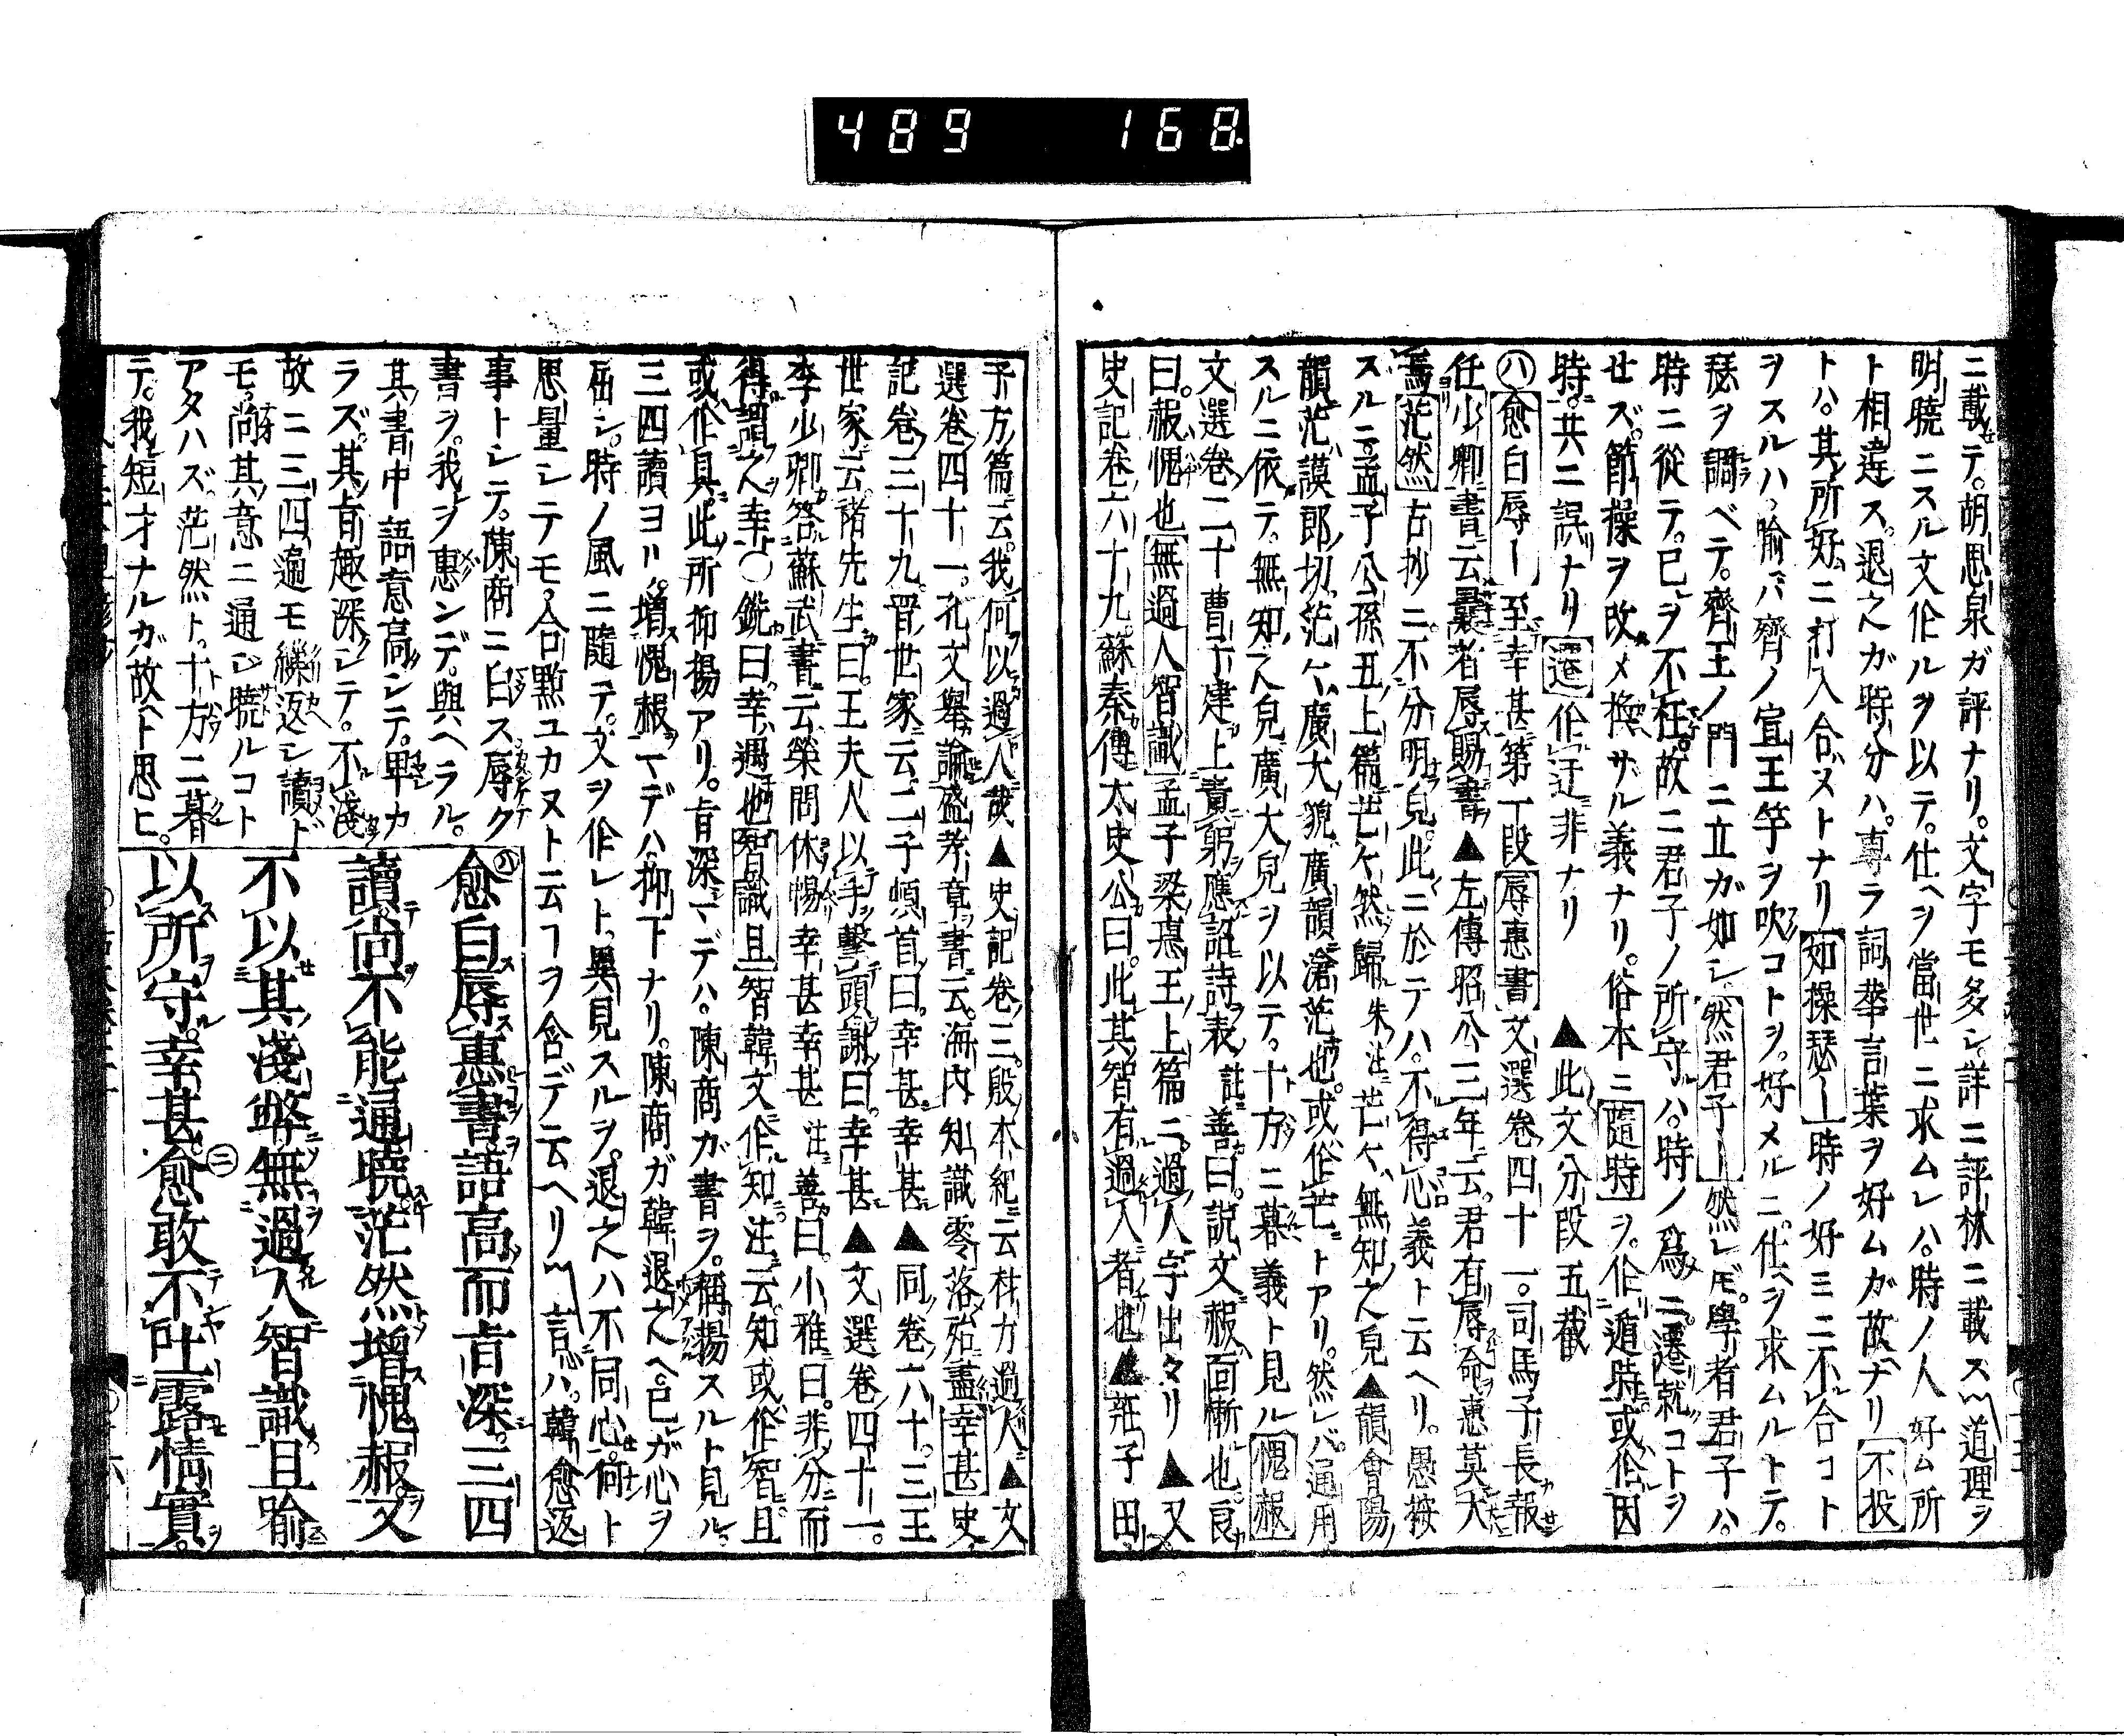 489 168
ニ載テ。胡思泉ガ評ナリ。文字モ多シ。詳ニ評林ニ載ス 道理ヲ
明曉ニスル文作ルヲ以テ。仕ヘヲ當世ニ求ムレハ。時ノ人好ム所
ト相違ス。退之ガ時分ハ。專ラ詞華言葉ヲ好ムガ故ナリ 不投
トハ。其所好ニ打入合ヌトナリ 如操瑟ー 時ノ好ミニ不合コト
ヲスルハ。喻ヘバ齊ノ宣王竽ヲ吹コトヲ。好メルニ。仕ヘヲ求ムルトテ。
瑟ヲ調ベテ。齊王ノ門ニ立ガ如シ 然君子ー 然レドモ。學者君子ハ。
時ニ從テ。己ヲ不枉。故ニ君子ノ所守ハ。時ノ爲ニ。遷就コトヲ
せズ。節操ヲ改メ換サル義ナリ。俗本ニ 隨時 ヲ。作遁時。或作因
時。共ニ誤ナリ 遷 作迁非ナリ ▲此文分段五截
㊇ 愈白辱ー 至幸甚第一段 辱惠書 文選卷四十一。司馬子長報
任少卿書云曩者辱賜書▲左傳昭公三年云。君有辱命惠莫大
焉 茫然 古抄ニ。不分明皃。此ニ於テハ。不得心義ト云ヘリ。愚按
スルニ。孟子公孫丑上篇芒〻然歸 朱注 芒〻無知之皃▲韻會陽
韻茫謨郎切。茫〻廣大貌廣韻滄茫也。或作芒トアリ。然レバ通用
スルニ依テ。無知之皃廣大皃ヲ以テ。十方ニ暮義ト見ル 愧赧
文選卷二十曹子建上責躬應詔詩表 註善曰。説文赧面慚也。良
曰。赧愧也 無過人智識 孟子梁惠王上篇ニ。過人字出タリ▲又
史記卷六十九蘇秦傳太史公曰。此其智有過人者也▲莊子田
子方篇云。我何以過人哉▲史記卷三。殷本紀云材力過人▲文
選卷四十一。孔文擧論盛孝章書云。海内知識零落殆盡 幸甚 史
記卷三十九。晋世家云。二子頓首曰。幸甚幸甚▲同卷六十。三王
世家云。諸先生曰。王夫人以手擊頭謝曰。幸甚▲文選卷四十一。
李少卿答蘇武書云。榮問休暢幸甚幸甚 注善曰。小雅曰。非分而
得謂之幸○銑曰。幸遇也 智識且 智韓文作知注云。知或作智且
或作具。此所抑揚アリ。旨深マデハ。陳商ガ書ヲ。稱揚スルト見ル。
三四讀ヨリ。增愧赧マデハ抑下ナリ。陳商ガ韓退之ヘ。己ガ心ヲ
屈シ。時ノ風ニ隨テ。文ヲ作レト。異見スルヲ。退之ハ不同心。何ト
思量シテモ。合點ユカヌト云フヲ含デ云ヘリ 言ハ。韓愈返
事トシテ。陳商ニ白ス辱ク
書ヲ。我ヲ惠ンデ。與ヘラル。
其書中語意高シテ。卑カ
ラズ。其旨趣深シテ。不淺
故ニ三四遍モ繰返シ讀ド
モ。尚其意ニ通シ曉ルコト
アタハズ。茫然ト。十方ニ暮
テ。我短才ナルガ故ヘト思ヒ。
㊇愈白。辱惠書語高而旨深。三四
讀尚不能通曉。茫然增愧赧。又
不以其淺弊無過人智識。且喻
以所守。幸甚。㊁愈敢不吐露情實。